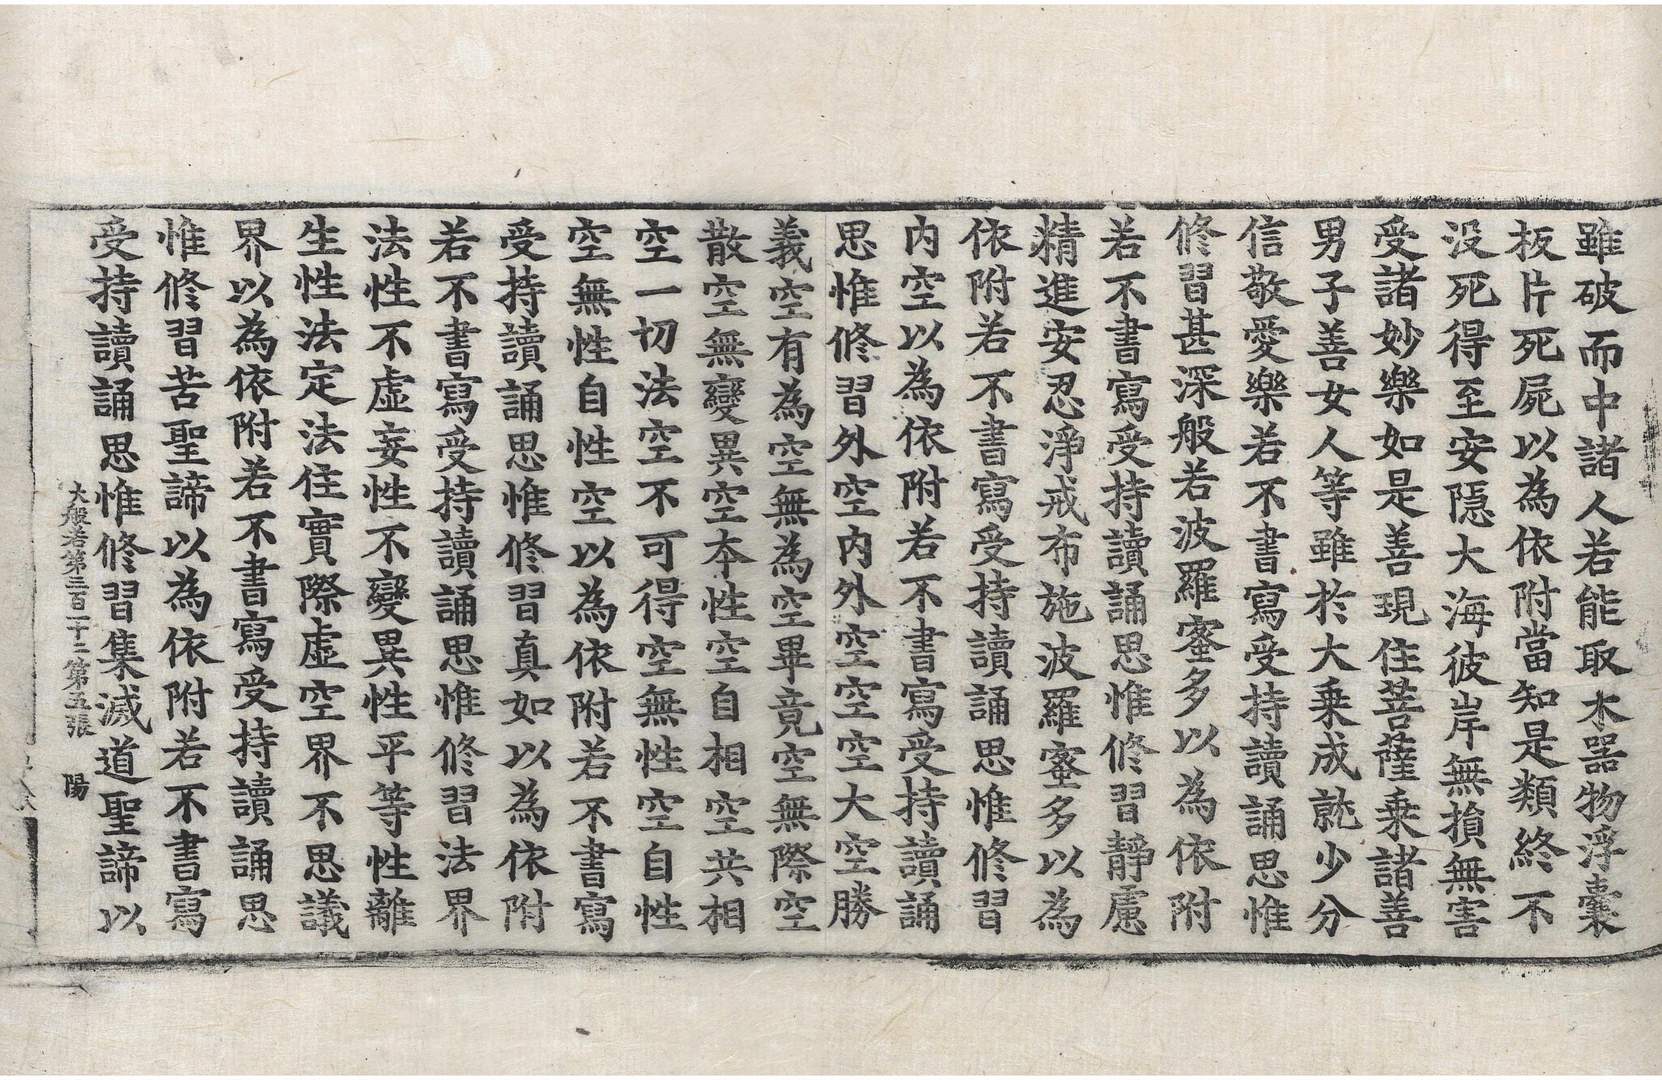 雖破而中諸人若能取木器物浮囊
板片死屍以為依附當知是類終不
没死得至安隱大海彼岸無損無害
受諸妙樂如是善現住菩薩乗諸善
男子善女人等雖於大乗成就少分
信敬愛樂若不書寫受持讀誦思惟
修習甚深般若波羅蜜多以為依附
若不書寫受持讀誦思惟修習靜慮
精進安忍淨戒布施波羅蜜多以為
依附若不書寫受持讀誦思惟修習
内空以為依附若不書寫受持讀誦
思惟修習外空内外空空空大空勝
義空有為空無為空畢竟空無際空
散空無變異空本性空自相空共相
空一切法空不可得空無性空自性
空無性自性空以為依附若不書寫
受持讀誦思惟修習真如以為依附
若不書寫受持讀誦思惟修習法界
法性不虛妄性不變異性平等性離
生性法定法住實際虛空界不思議
界以為依附若不書寫受持讀誦思
惟修習苦聖諦以為依附若不書寫
受持讀誦思惟修習集滅道聖諦以
大般若第三百一十二第五張 陽